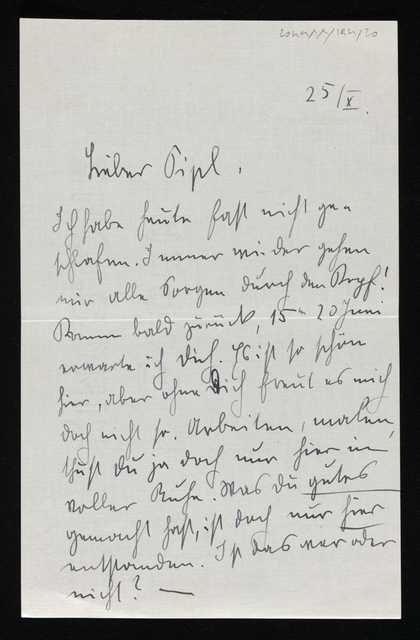 25/X.
Lieber Pipl,
Ich habe heute fast nicht ge=
schlafen. Immer wieder gehen
mir alle Sorgen durch den Kopf!
Komm bald zurück, 15 – 20 Juni
erwarte ich Dich. Es ist so schön
hier, aber ohne Dich freut es mich
doch nicht so. Arbeiten, malen,
thust Du ja doch nur hier in
voller Ruhe. Was Du gutes
gemacht hast, ist doch nur hier
entstanden. Ist das war oder
nicht? —